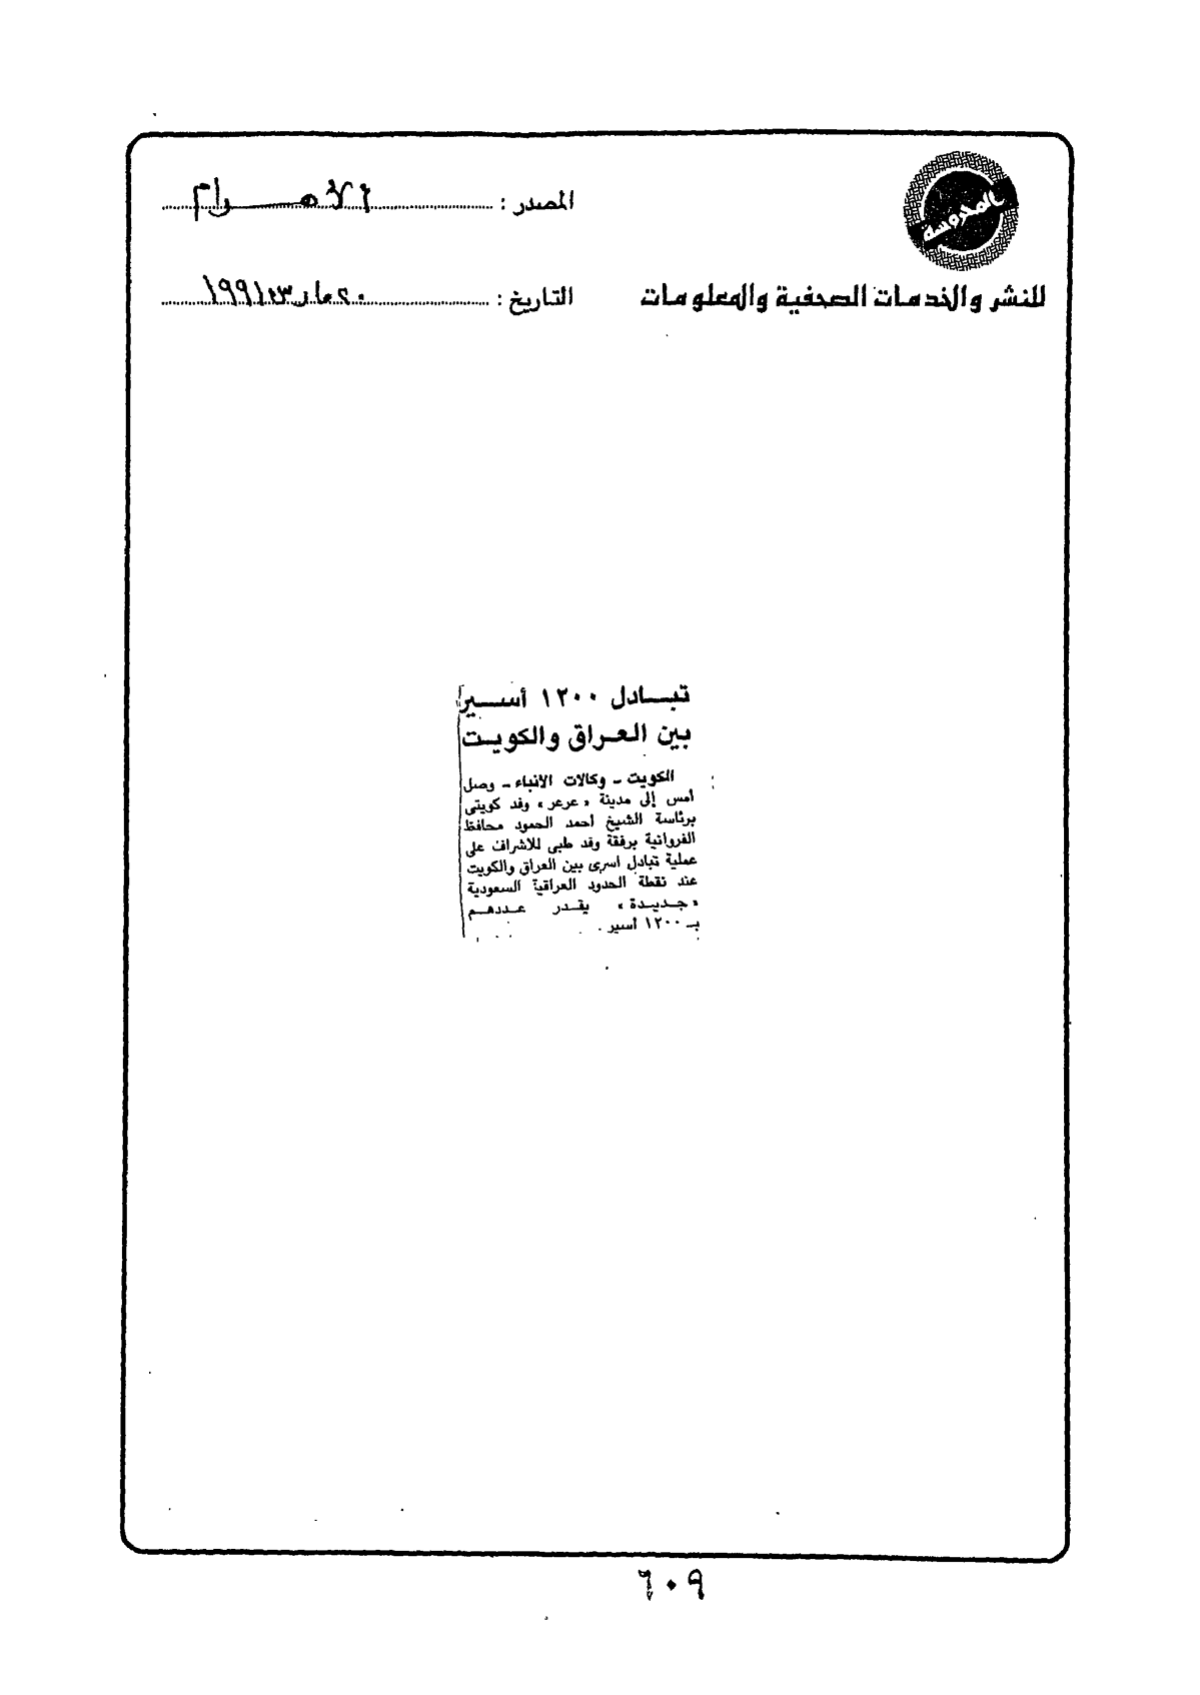 المحروسة
للنشر والخدمات الصحفية والمعلومات
المصدر : الأهرام
التاريخ : ٢٠ مارس ١٩٩١
تبادل ١٢٠٠ أسير
بين العراق والكويت
الكويت - وكالات الأنباء - وصل
أمس إلى مدينة « عرعر » وفد كويتى
برئاسة الشيخ أحمد الحمود محافظ
الفروانية برفقة وفد طبى للاشراف على
عملية تبادل اسرى بين العراق والكويت
عند نقطة الحدود العراقية السعودية
« جديدة » يقدر عددهم
بـ ١٢٠٠ أسير .
٦٠٩